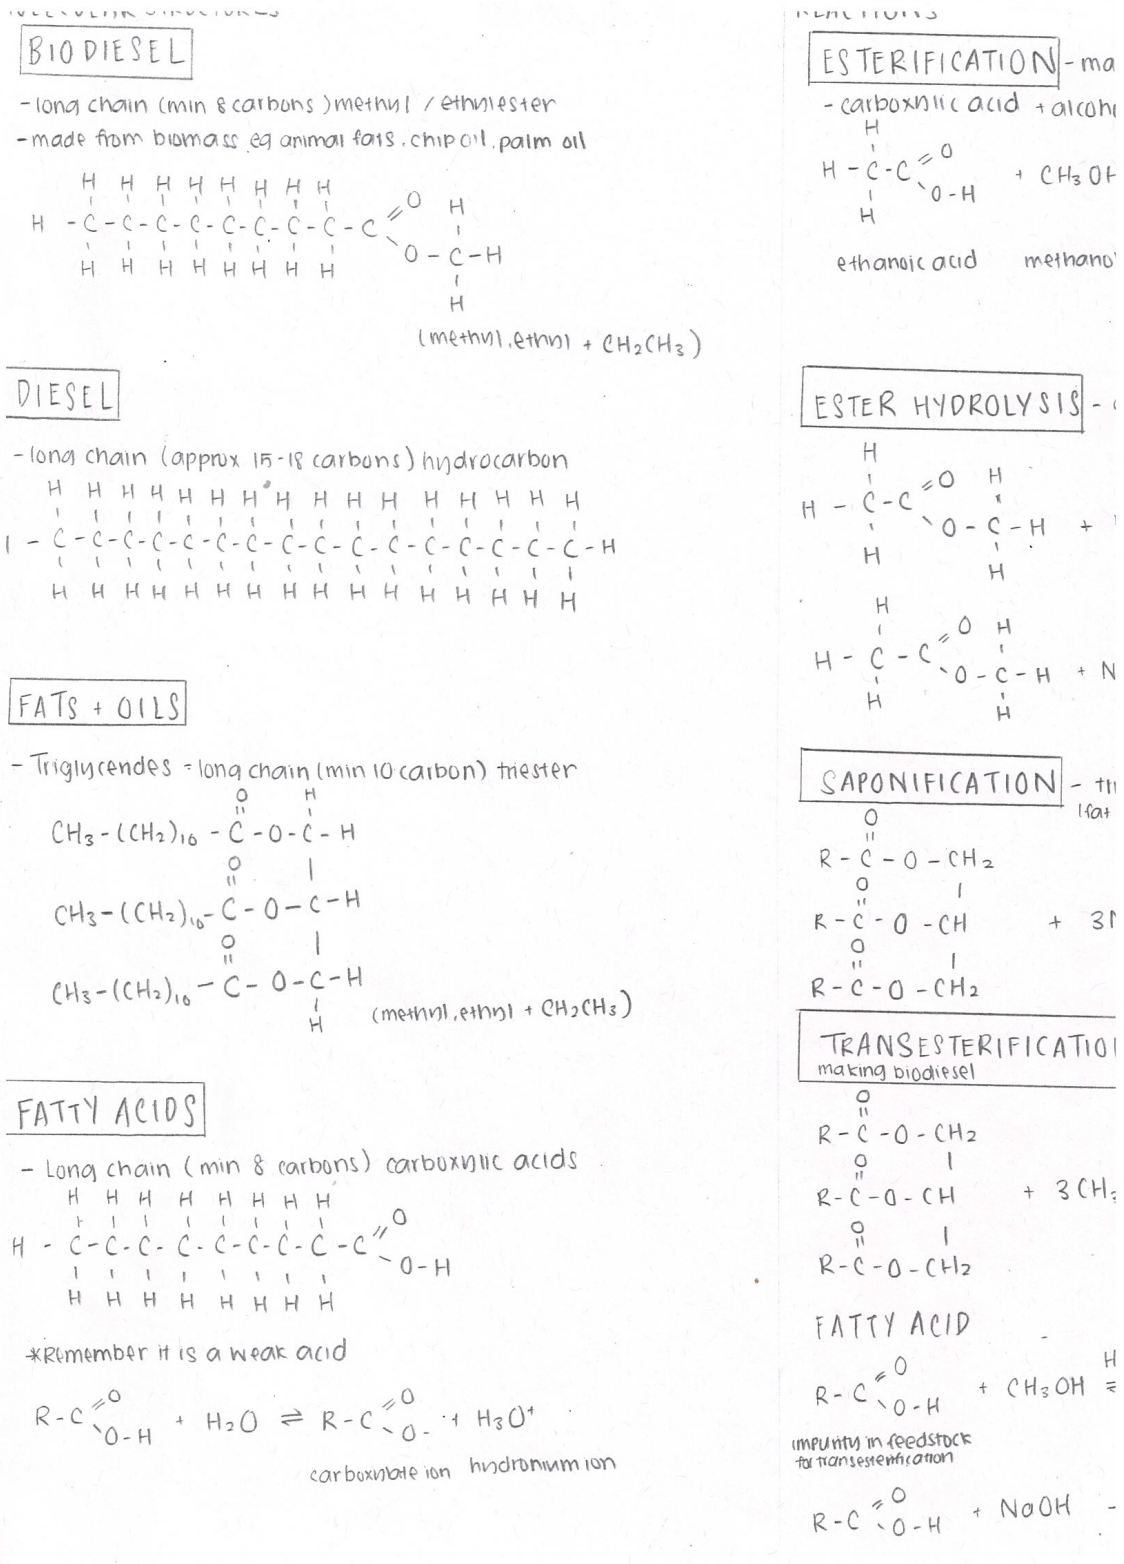 MOLECULAR STRUCTURES
BIODIESEL
- long chain (min 8 carbons) methyl / ethylester
- made from biomass eg animal fats, chip oil, palm oil
H H H H H H H H
H - C - C - C - C - C - C - C - C - C = O H
O - C - H
H H H H H H H H
H
(methyl, ethyl + CH₂CH₃)
DIESEL
- long chain (approx 15-18 carbons) hydrocarbon
H H H H H H H H H H H H H H H H
- C - C - C - C - C - C - C - C - C - C - C - C - C - C - C - C - H
H H H H H H H H H H H H H H H H
FATS + OILS
- Triglycerides = long chain (min 10 carbon) triester
O H
CH₃-(CH₂)₁₀ - C - O - C - H
O
CH₃-(CH₂)₁₀ - C - O - C - H
O
CH₃-(CH₂)₁₀ - C - O - C - H
H
(methyl, ethyl + CH₂CH₃)
FATTY ACIDS
- Long chain (min 8 carbons) carboxylic acids
H H H H H H H H
H - C - C - C - C - C - C - C - C - C = O
O - H
H H H H H H H H
*Remember it is a weak acid
R - C = O O - H + H₂O ⇌ R - C = O O- + H₃O⁺
carboxylate ion hydronium ion
REACTIONS
ESTERIFICATION - ma
- carboxylic acid + alcoh
H
H - C - C = O O - H + CH₃OH
H
ethanoic acid methano
ESTER HYDROLYSIS -
H
H - C - C = O H
O - C - H +
H H
H
H - C - C = O H
O - C - H + N
H H
SAPONIFICATION - tri
(fat
O
R - C - O - CH₂
O
R - C - O - CH + 3N
O
R - C - O - CH₂
TRANSESTERIFICATION
making biodiesel
O
R - C - O - CH₂
O
R - C - O - CH + 3CH₃
O
R - C - O - CH₂
FATTY ACID
H
R - C = O O - H + CH₃OH ⇌
impurity in feedstock
for transesterification
R - C = O O - H + NaOH -